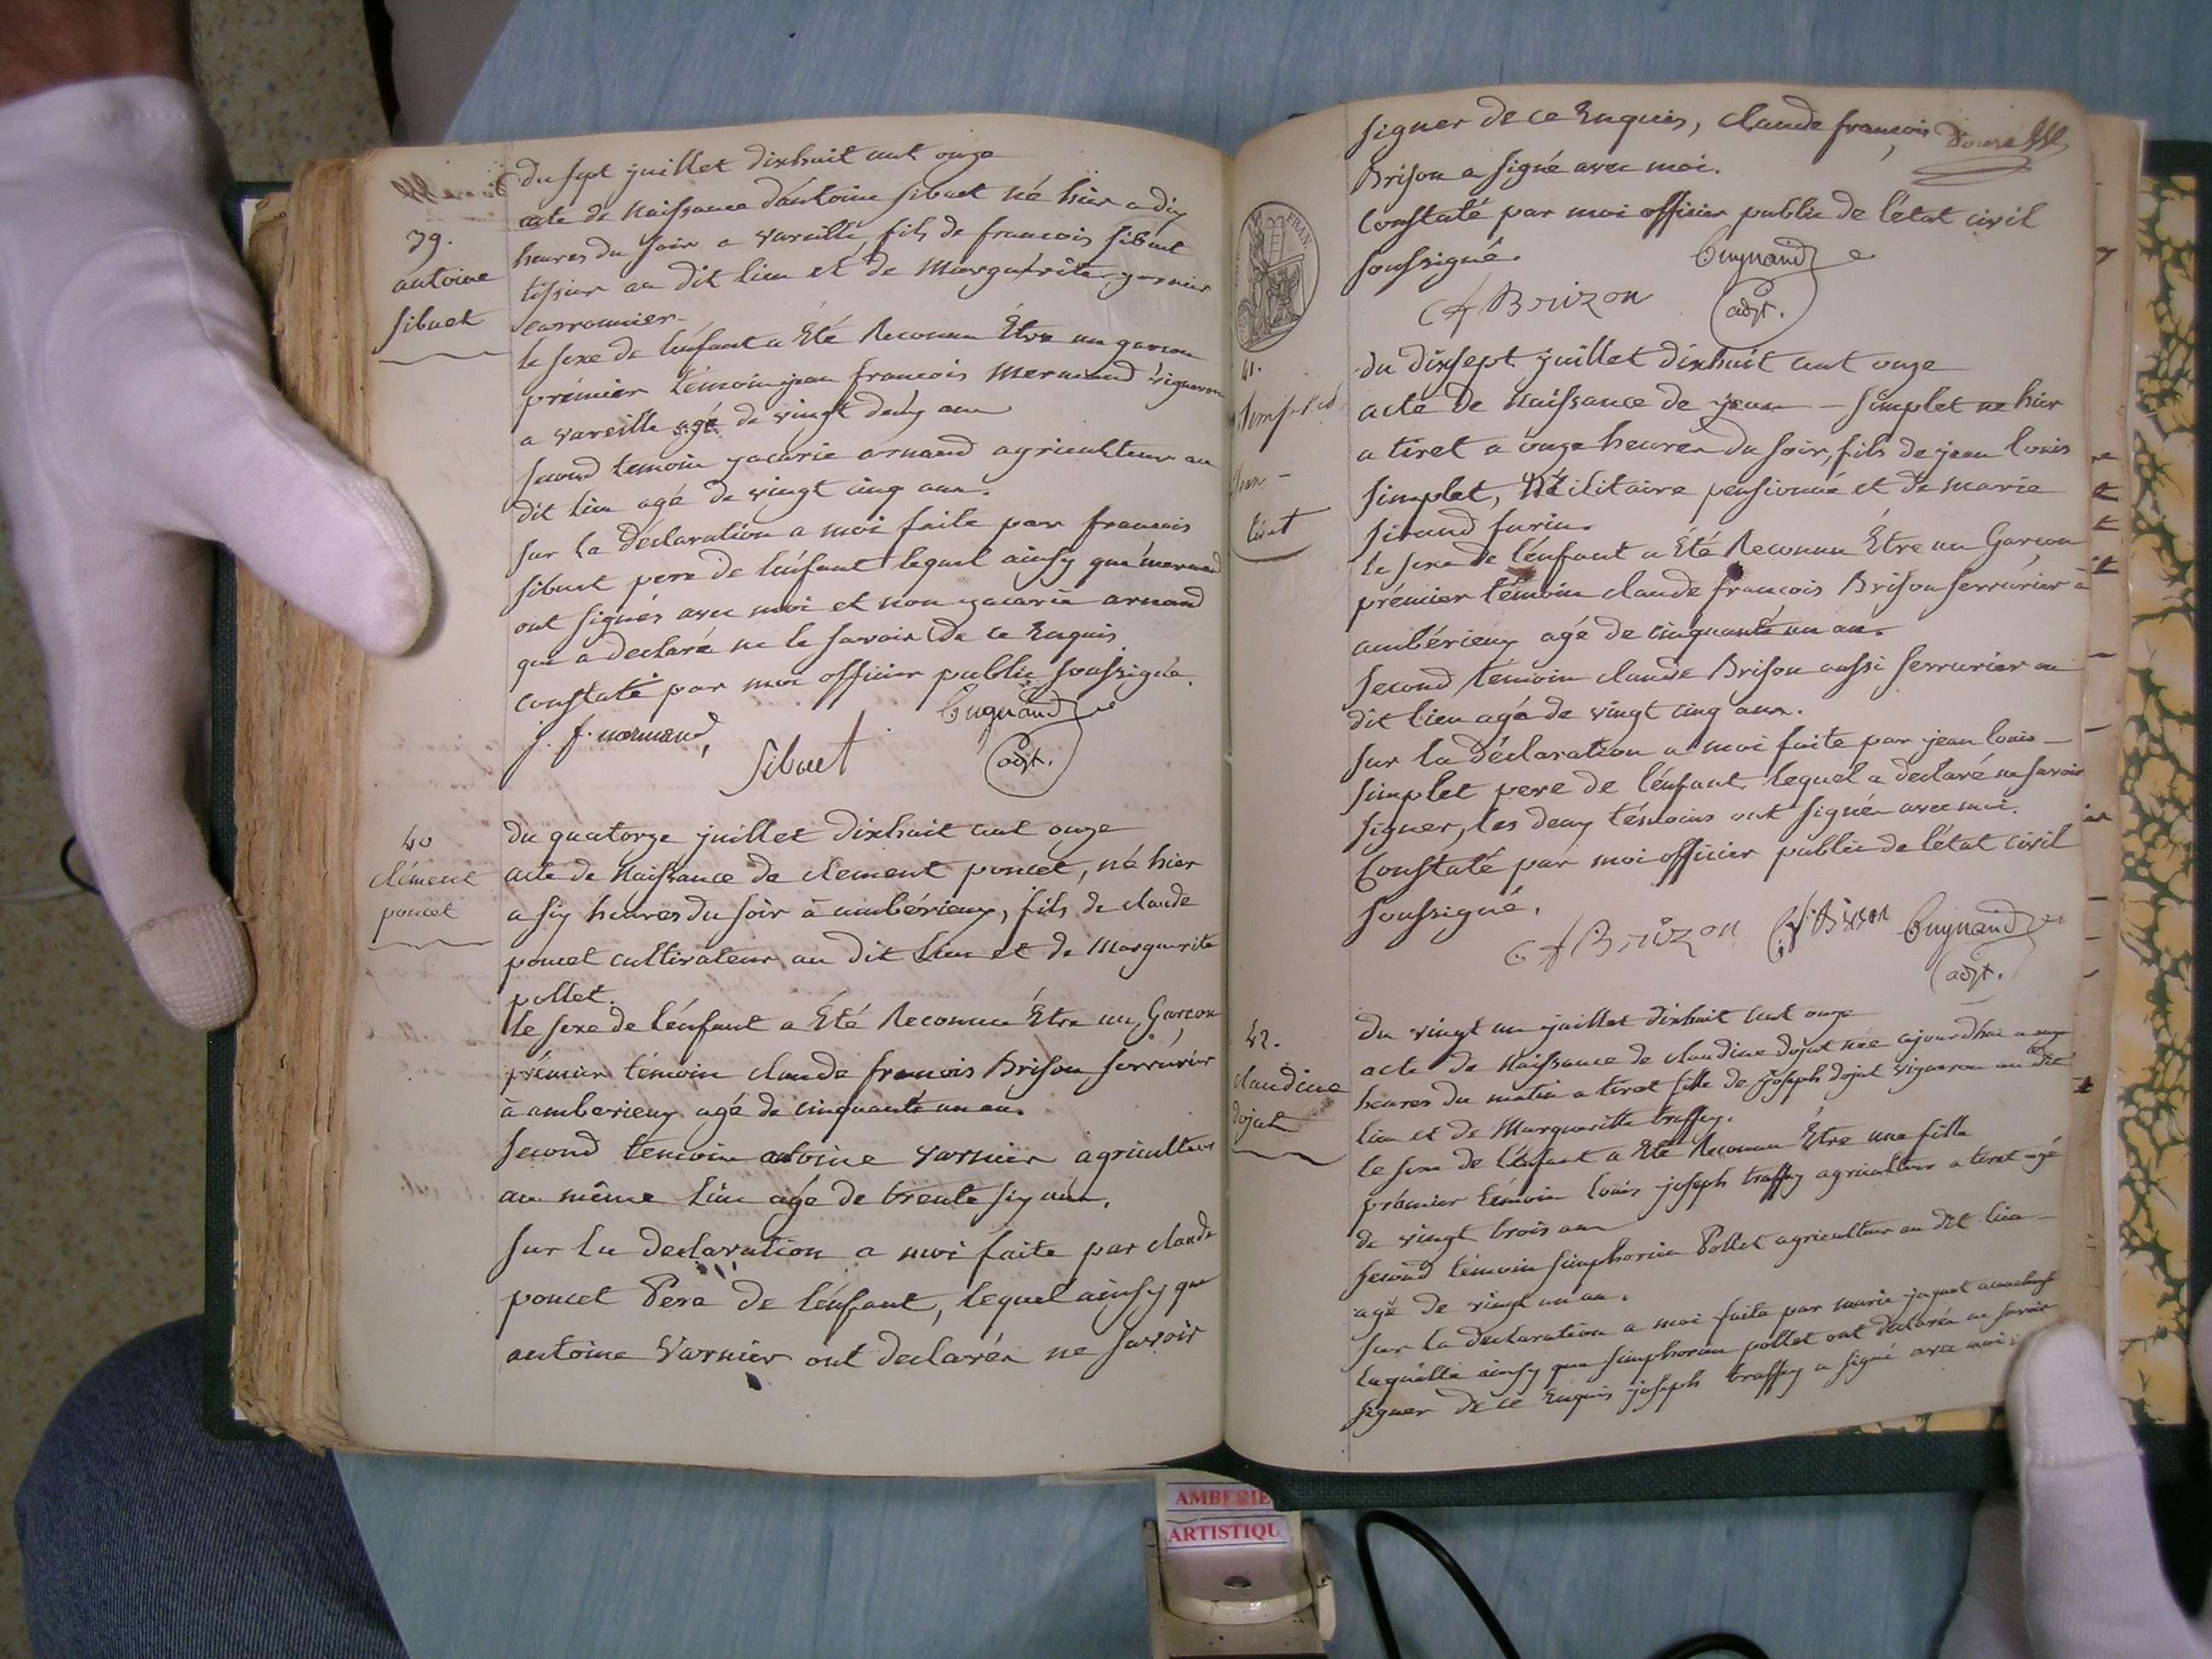 du sept juillet dixhuit cent onze
acte de Naissance dantoine sibuet né hier a dix
heures du soir a vareille, fils de francois sibuet
tissier au dit lieu et de Marguerite
39.
antoine
sibuet
le sexe de l'énfant a Été Reconnu Être un garcon
prémier témoin jean francois Mermand vigneron
a vareille agé de vingt deux ans
second temoin zacarie arnaud agriculteur au
dit lieu agé de vingt cinq ans.
sur la déclaration a moi faite par francois
sibuet pere de l'énfant lequel ainsy que mermand
ont signés avec moi et non zacarie arnaud
qui a declaré ne le savoir de ce Enquis
constaté par moi officier public soussigné.
j. f. mermand
sibuet
Cuynand
adjt.
40
clément
poncet
du quatorze juillet dixhuit cent onze
acte de Naissance de clement poncet, né hier
a six heures du soir à ambérieux, fils de claude
poncet cultivateur au dit lieu et de Marguerite
pollet.
le sexe de l'énfant a Été Reconnu Être un Garcon
prémier témoin claude francois Brison serrurier
à amberieux agé de cinquante un an.
second temoin antoine varnier agriculteur
au même lieu agé de trente six ans.
sur la declaration a moi faite par claude
poncet Pere de l'énfant, lequel ainsy que
antoine Varnier ont declarés ne savoir
signer de ce Enquis, claude francois
Brison a signé avec moi.
constaté par moi officier public de l'état civil
soussigné.
FRAN.
Cf Brizon
Cuynand
adjt.
41.
simplet
jean
tiret
du dixsept juillet dixhuit cent onze
acte de Naissance de jean - simplet ne hier
a tiret a onze heures du soir, fils de jean louis
simplet, Militaire pensionné et de marie
sirand furin.
le sexe de l'énfant a Été Reconnu Être un Garcon
prémier témoin claude francois Brison serrurier à
ambérieux agé de cinquante un an.
second témoin claude Brison aussi serrurier au
dit lieu agé de vingt cinq ans.
sur la déclaration a moi faite par jean louis
simplet pere de l'énfant lequel a declaré ne savoir
signer, les deux témoins ont signés avec moi.
Constaté par moi officier public de l'état civil
soussigné.
C. f Brizon
Brison
Cuynand
adjt.
42.
claudine
dojat
du vingt un juillet dixhuit cent onze
acte de Naissance de claudine dojat née ajourdhui a onze
heures du matin a tiret fille de joseph dojat vigneron au dit
lieu et de Margueritte traffey.
le sexe de l'énfant a Eté Reconnu Être une fille
prémier témoin louis joseph traffey agriculteur a tiret agé
de vingt trois ans
second témoin simphorien Pollet agriculteur au dit lieu
agé de vingt un an.
sur la declaration a moi faite par marie juguet
laquélle ainsy que simphorien pollet ont declarés ne savoir
signer de ce Enquis joseph traffey a signé avec moi
AMBERIE
ARTISTIQU